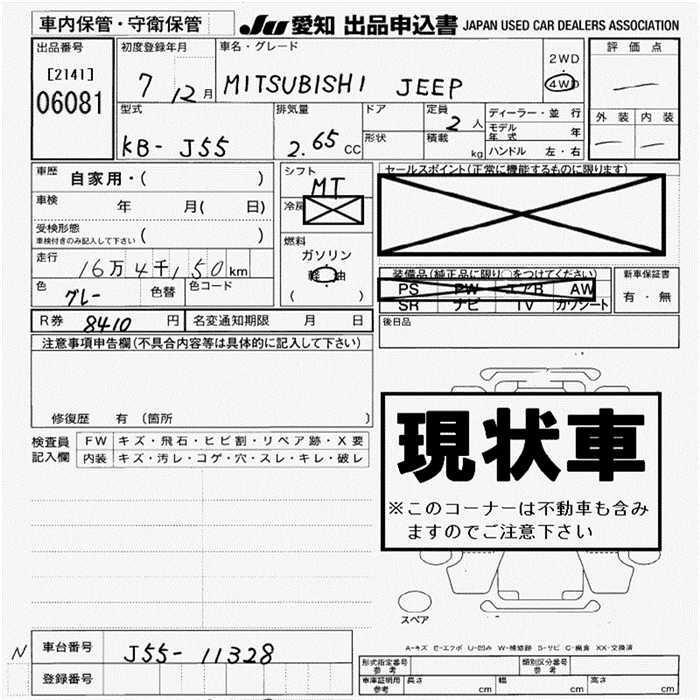 車内保管・守衛保管
JU 愛知 出品申込書 JAPAN USED CAR DEALERS ASSOCIATION
出品番号
[2141]
06081
初度登録年月
7 12 月
車名・グレード
MITSUBISHI JEEP
2WD
4WD
評価点
外装 内装
型式
KB- J55
排気量
2.65 CC
ドア
形状
定員
2 人
積載
kg
ディーラー・並行
モデル年式 年
ハンドル 左・右
車歴 自家用・( )
車検 年 月( 日)
受検形態
車検付きのみ記入して下さい ( )
走行
16万4千150km
色 グレー 色替 色コード
シフト
MT
冷房
燃料
ガソリン
軽油
( )
セールスポイント(正常に機能するものに限ります)
装備品(純正品に限り○をつけてください)
PS PW エアB AW
SR ナビ TV カワシート
新車保証書
有・無
後日品
R券 8410 円 名変通知期限 月 日
注意事項申告欄(不具合内容等は具体的に記入して下さい)
修復歴 有 (箇所 )
検査員
記入欄
FW キズ・飛石・ヒビ割・リペア跡・X要
内装 キズ・汚レ・コゲ・穴・スレ・キレ・破レ
現状車
※このコーナーは不動車も含み
ますのでご注意下さい
スペア
N
車台番号 J55-11328
登録番号
A-キズ E-エクボ U-凹み W-補修跡 S-サビ C-腐食 XX-交換済
形式指定番号
参考
類別区分番号
参考
車庫証明用
参考
長さ cm 幅 cm 高さ cm